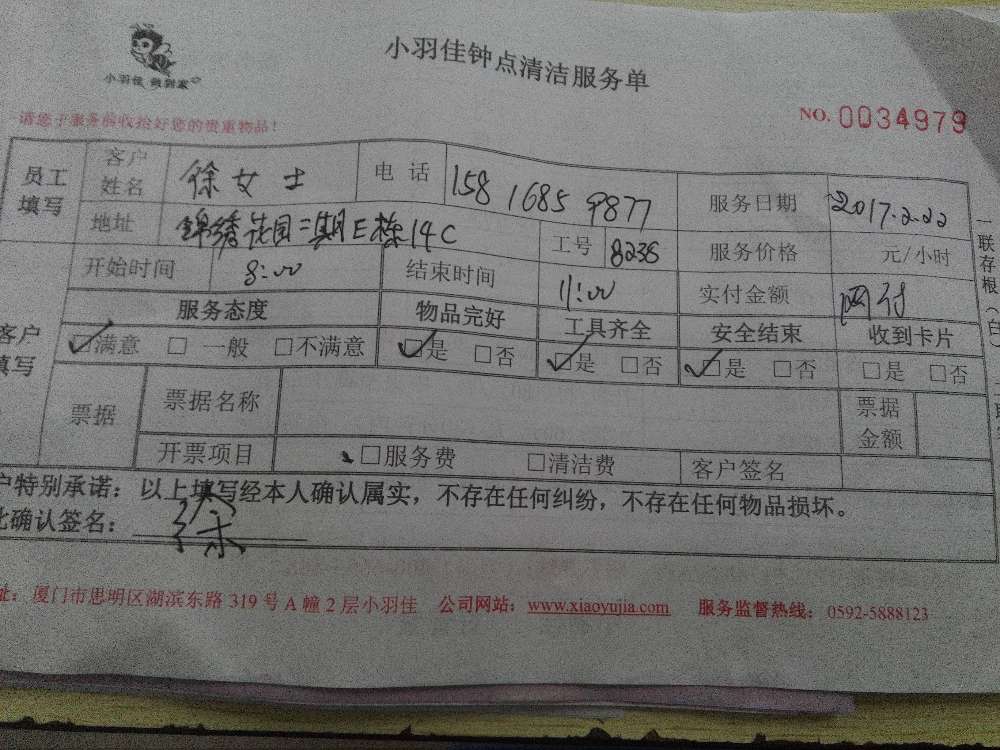 小羽佳钟点清洁服务单
小羽佳 做到家
NO. 0034979
请您于服务前收拾好您的贵重物品！
员工填写 客户姓名 徐女士 电话 158 1685 9877 服务日期 2017.2.22
地址 锦绣花园三期E栋14C 工号 8238 服务价格 元/小时
开始时间 8:00 结束时间 11:00 实付金额 网付
客户填写 服务态度 物品完好 工具齐全 安全结束 收到卡片
☑满意 □一般 □不满意 ☑是 □否 ☑是 □否 ☑是 □否 □是 □否
票据 票据名称 票据金额
开票项目 □服务费 □清洁费 客户签名
户特别承诺：以上填写经本人确认属实，不存在任何纠纷，不存在任何物品损坏。
此确认签名： 徐
址：厦门市思明区湖滨东路 319 号 A 幢 2 层小羽佳 公司网站：www.xiaoyujia.com 服务监督热线：0592-5888123
一联存根（白）